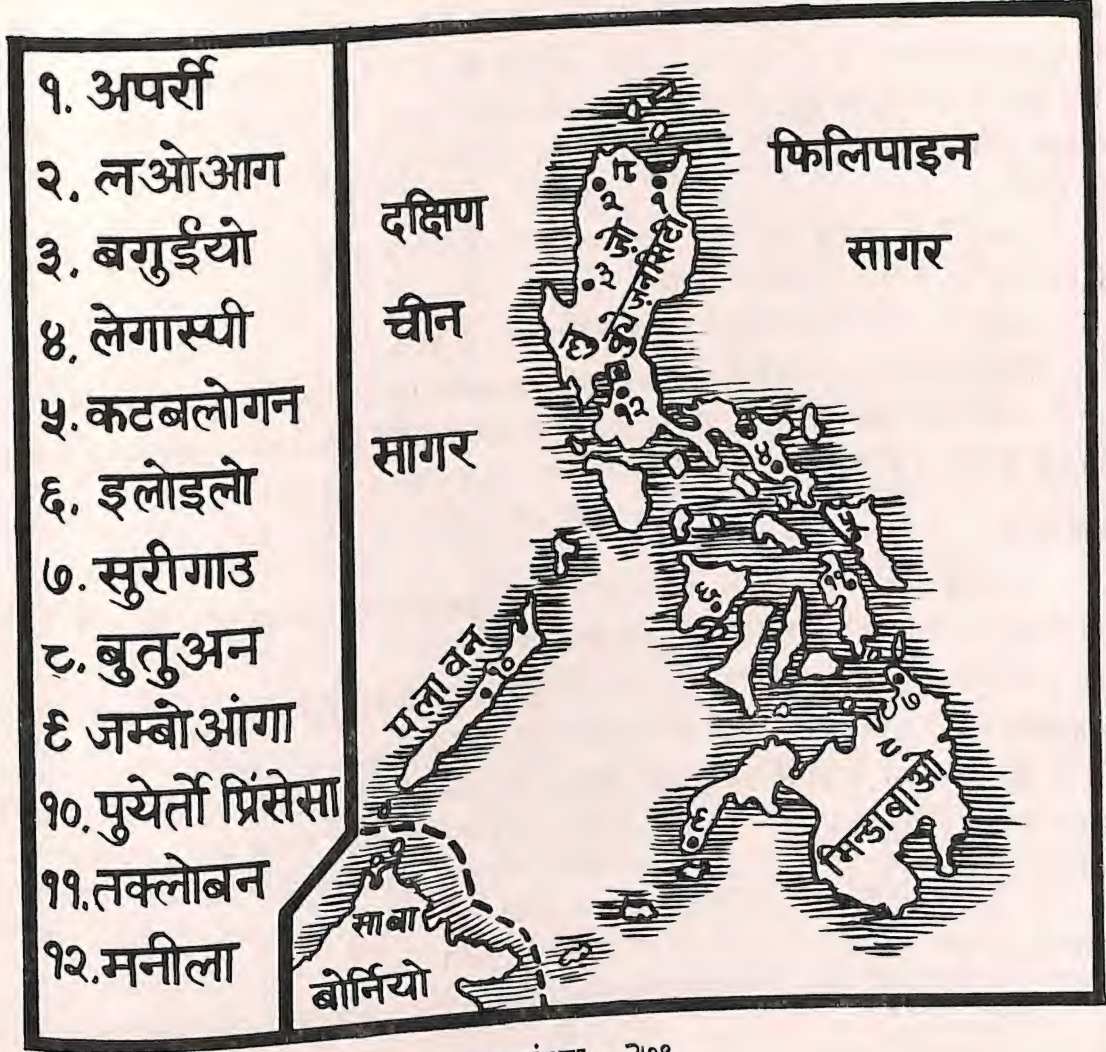 १. अपर्री
२. लओआग
३. बगुईयो
४. लेगास्पी
५. कटबलोगन
६. इलोइलो
७. सुरीगाउ
८. बुतुअन
९ जम्बोआंगा
१०. पुयेर्तो प्रिंसेसा
११. तक्लोबन
१२. मनीला
दक्षिण
चीन
सागर
फिलिपाइन
सागर
२
१
३
१२
४
५
६
११
पलावन
१०
७
८
९
मिन्डाबाओ
साबा
बोर्नियो